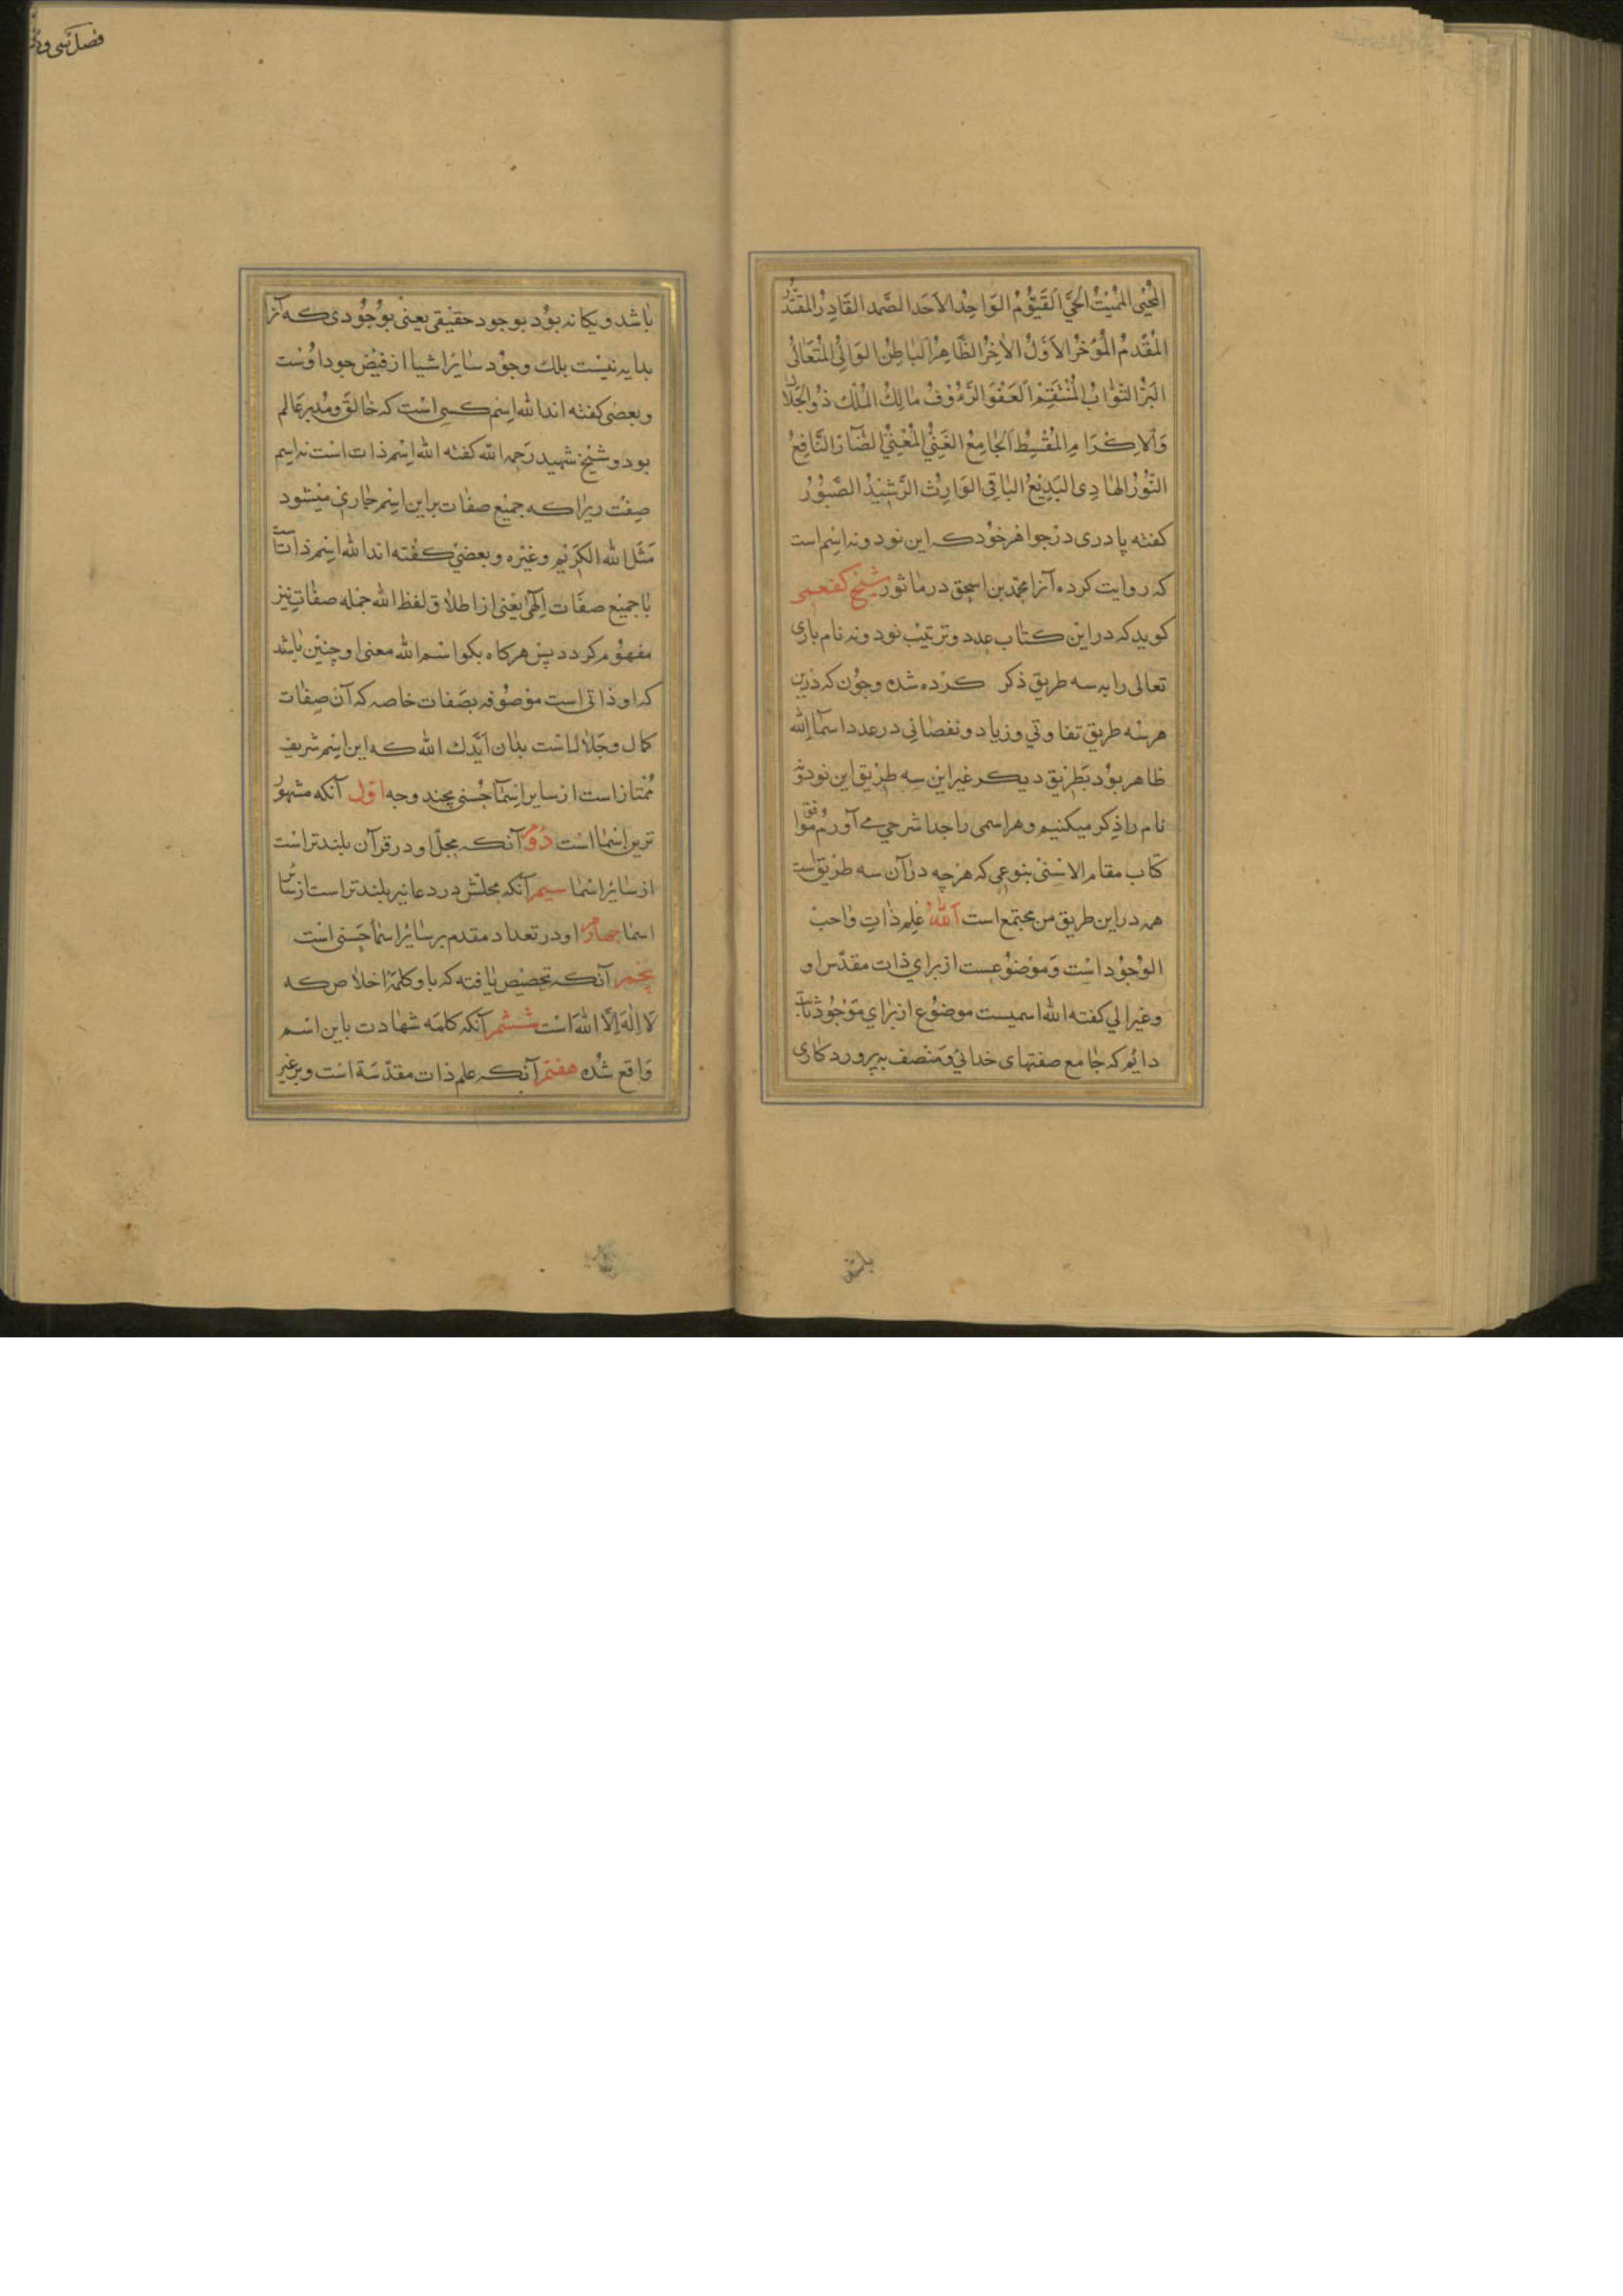 المُحْيِي المُمِيتُ الحَيَّ القَيُّومُ الوَاجِدُ الاَحَدَ الصَّمد القَادِرُ المقتَدِرُ
المُقَدِّمُ المُؤَخِّرُ الاَوَّلُ الاٰخِرُ الظَّاهِرُ البَاطِنُ الوَالِيُ المُتَعَالُى
البَرُّ التَّوَّابُ المُنْتَقِمُ العَفُوَّ الرَّءُوفُ مَالِكُ المُلْك ذُوالجَلَالِ
وَالاِكْرَامِ المُقْسِطُ الجَامِعُ الغَنِيُّ المُغْنِيُّ الضَّآرُ النَّافِعُ
النُّورُ الهَادِى البَدِيْعُ البَاقِي الوَارِثُ الرَّشِيْدُ الصَّبُورُ
كفته پادرى در جواهر خود كه اين نود ونه اسم است
كه روايت كرده آنرا محمد بن اسحق در ماثور شيخ كفعمى
كويد كه در اين كتاب عدد وترتيب نود ونه نام بارى
تعالى را به سه طريق ذكر كرده شده وچون كه درين
هر سه طريق تفاوتي وزياد ونقصاني در عدد اسمآ الله
ظاهر بود بطريق ديكر غير اين سه طريق اين نود ونه
نام را ذكر ميكنيم وهر اسمى را جدا شرحي مے آورم موافق
كتاب مقام الاسنى بنوعى كه هر چه در آن سه طريق است
همه در اين طريق من مجتمع است اَللّٰهُ علم ذات واجب
الوجود است وموضوعست از براي ذات مقدّس او
وغزالي كفته الله اسميست موضوع از براي موجود ثابت
دايم كه جامع صفتهاى خدائي ومتصف بپروردكارى
باشد
فصل سى و
باشد ويكانه بود بوجود حقيقي يعنى بوجودى كه آنرا
بدايه نيست بلك وجود ساير اشيا از فيض جود اوست
وبعضى كفته اند الله اسم كسى است كه خالق ومدبر عالم
بود وشيخ شهيد رحمه الله كفته الله اسم ذات است نه اسم
صفت زيرا كه جميع صفات بر اين اسم جارى ميشود
مَثَل الله الكريم وغيره وبعضي كفته اند الله اسم ذاتست
با جميع صفات الٓهى يعنى از اطلاق لفظ الله جمله صفات نيز
مفهوم كردد پس هركاه بكو اسم الله معنى او چنين باشد
كه او ذاتى است موصوفه بصفات خاصه كه آن صفات
كمال وجلال است بدان ايّدك الله كه اين اسم شريف
ممتاز است از ساير اسمآ حسنى بچند وجه اوّل آنكه مشهور
ترين اسما است دوم آنكه محلّ او در قرآن بلندتر است
از ساير اسما سيم آنكه محلّش در دعا نيز بلندتر است از ساير
اسما چهارم او در تعداد مقدم بر ساير اسمآ حسنى است
پنجم آنكه تخصيص يافته كه باو كلمهٔ اخلاص كه
لا اله الّا الله است ششم آنكه كلمه شهادت باين اسم
واقع شده هفتم آنكه علم ذات مقدّسة است وبر غير